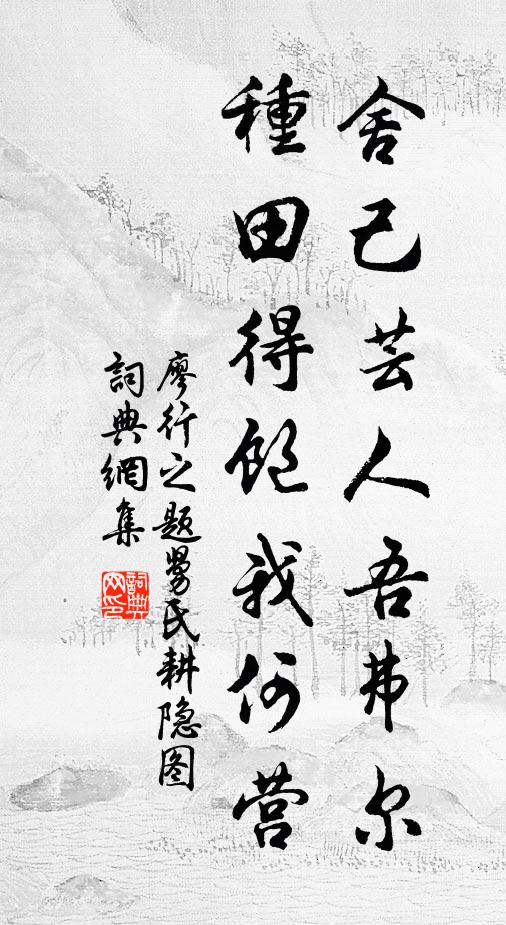 舍己芸人吾弗尔
種田得飽我何营
廖行之题㽦氏耕隐图
詞典網集
詞典网印